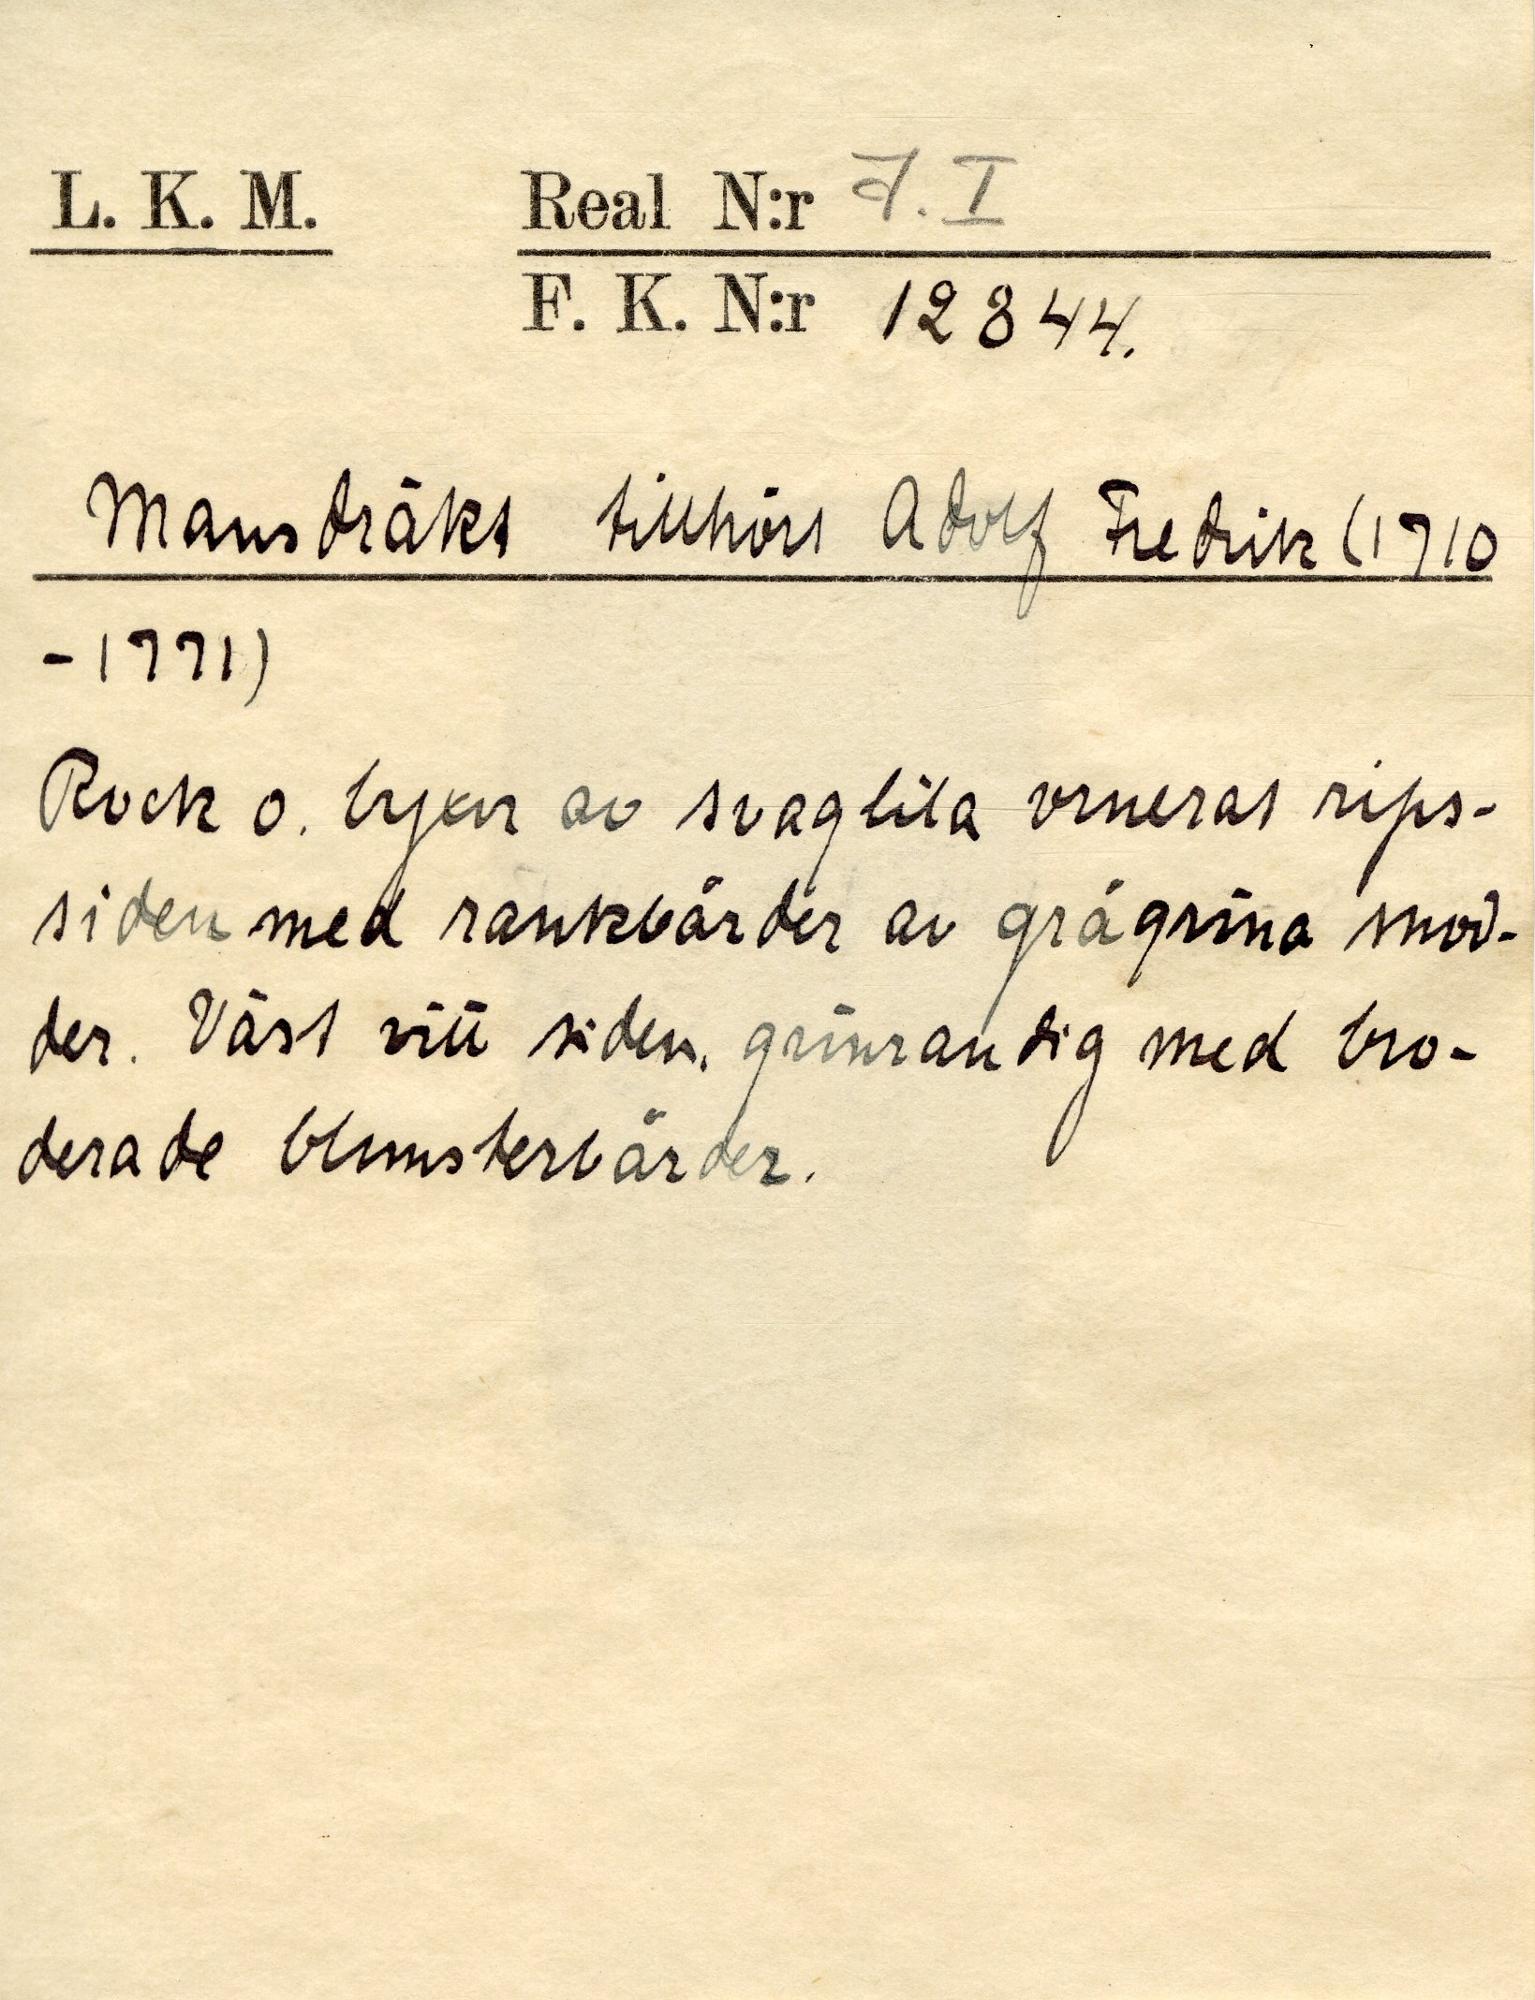 L. K. M. Real N:r F. I
F. K. N:r 12844.
Mansdräkt tillhört Adolf Fredrik (1710
-1771)
Rock o. byxor av svaglila ornerat rips-
siden med rankbårder av grågröna snod-
der. Väst vitt siden, grönrandig med bro-
derade blomsterbårder.